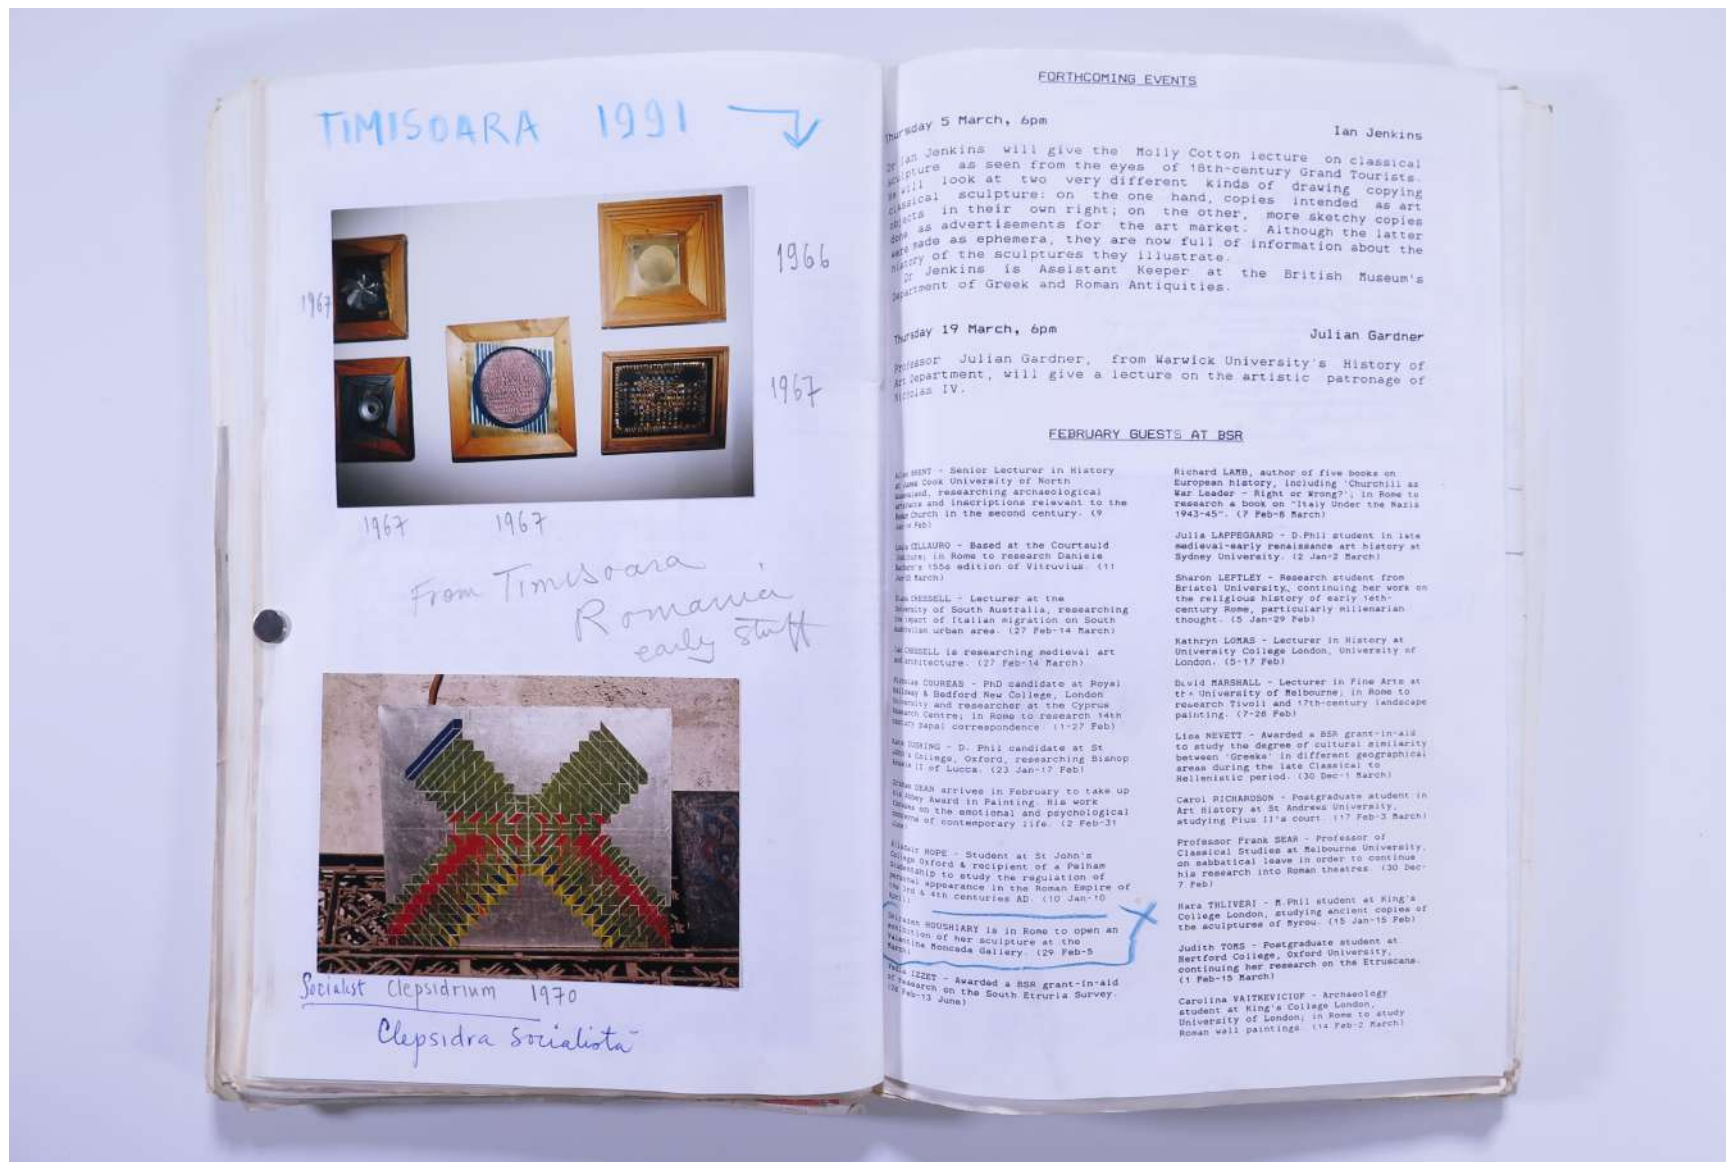 TIMISOARA 1991
1966
1967
1967
1967 1967
From Timisoara
Romania
early stuff
Socialist Clepsidrium 1970
Clepsidra Socialistă
FORTHCOMING EVENTS
Thursday 5 March, 6pm
Ian Jenkins
Dr Ian Jenkins will give the Molly Cotton lecture on classical
sculpture as seen from the eyes of 18th-century Grand Tourists.
He will look at two very different kinds of drawing copying
classical sculpture: on the one hand, copies intended as art
objects in their own right; on the other, more sketchy copies
done as advertisements for the art market. Although the latter
were made as ephemera, they are now full of information about the
history of the sculptures they illustrate.
Dr Jenkins is Assistant Keeper at the British Museum's
Department of Greek and Roman Antiquities.
Thursday 19 March, 6pm
Julian Gardner
Professor Julian Gardner, from Warwick University's History of
Art Department, will give a lecture on the artistic patronage of
Nicholas IV.
FEBRUARY GUESTS AT BSR
BRENT - Senior Lecturer in History
at James Cook University of North
Queensland, researching archaeological
and inscriptions relevant to the
Church in the second century. (9
Feb)
CELLAURO - Based at the Courtauld
in Rome to research Daniele
1556 edition of Vitruvius. (11
March)
CHESSELL - Lecturer at the
University of South Australia, researching
the impact of Italian migration on South
Australian urban area. (27 Feb-14 March)
CHESSELL is researching medieval art
and architecture. (27 Feb-14 March)
Nicholas COUREAS - PhD candidate at Royal
Holloway & Bedford New College, London
University and researcher at the Cyprus
Research Centre; in Rome to research 14th
century papal correspondence. (1-27 Feb)
CUSHING - D. Phil candidate at St
College, Oxford, researching Bishop
Anselm II of Lucca. (23 Jan-17 Feb)
Graham DEAN arrives in February to take up
his Abbey Award in Painting. His work
focuses on the emotional and psychological
of contemporary life. (2 Feb-31
HOPE - Student at St John's
College Oxford & recipient of a Pelham
Studentship to study the regulation of
personal appearance in the Roman Empire of
the 3rd & 4th centuries AD. (10 Jan-10
April)
Shirazeh HOUSHIARY is in Rome to open an
exhibition of her sculpture at the
Valentina Moncada Gallery. (29 Feb-5
March)
IZZET - Awarded a BSR grant-in-aid
of research on the South Etruria Survey.
Feb-13 June)
Richard LAMB, author of five books on
European history, including 'Churchill as
War Leader - Right or Wrong?'; in Rome to
research a book on "Italy Under the Nazis
1943-45". (7 Feb-8 March)
Julia LAPPEGAARD - D.Phil student in late
medieval-early renaissance art history at
Sydney University. (2 Jan-2 March)
Sharon LEFTLEY - Research student from
Bristol University, continuing her work on
the religious history of early 16th-
century Rome, particularly millenarian
thought. (5 Jan-29 Feb)
Kathryn LOMAS - Lecturer in History at
University College London, University of
London. (5-17 Feb)
David MARSHALL - Lecturer in Fine Arts at
the University of Melbourne; in Rome to
research Tivoli and 17th-century landscape
painting. (7-28 Feb)
Lisa NEVETT - Awarded a BSR grant-in-aid
to study the degree of cultural similarity
between 'Greeks' in different geographical
areas during the late Classical to
Hellenistic period. (30 Dec-1 March)
Carol RICHARDSON - Postgraduate student in
Art History at St Andrews University,
studying Pius II's court. (17 Feb-3 March)
Professor Frank SEAR - Professor of
Classical Studies at Melbourne University,
on sabbatical leave in order to continue
his research into Roman theatres. (30 Dec-
7 Feb)
Hara THLIVERI - M.Phil student at King's
College London, studying ancient copies of
the sculptures of Myrou. (15 Jan-15 Feb)
Judith TOMS - Postgraduate student at
Hertford College, Oxford University,
continuing her research on the Etruscans.
(1 Feb-15 March)
Carolina VAITKEVICIUP - Archaeology
student at King's College London,
University of London; in Rome to study
Roman wall paintings. (14 Feb-2 March)